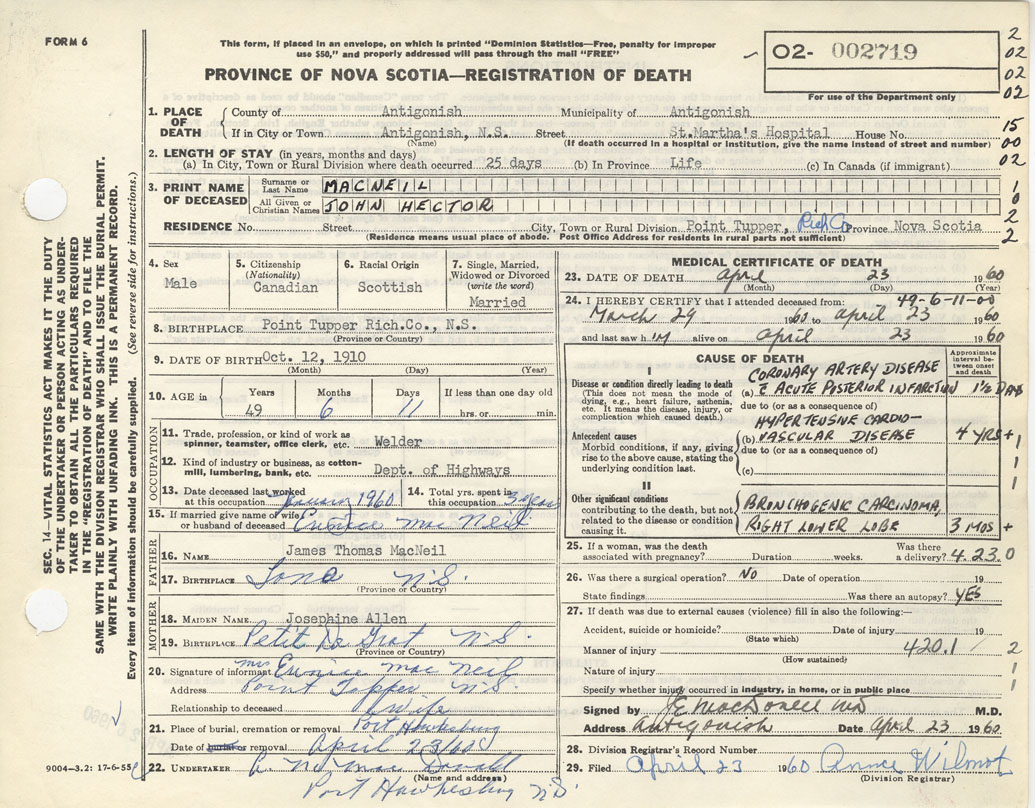 FORM 6
This form, if placed in an envelope, on which is printed "Dominion Statistics—Free, penalty for improper
use $50," and properly addressed will pass through the mail "FREE"
PROVINCE OF NOVA SCOTIA—REGISTRATION OF DEATH
02- 002719
For use of the Department only
2
02
02
02
15
00
02
1
0
2
2
1. PLACE OF DEATH
County of Antigonish Municipality of Antigonish
If in City or Town Antigonish, N.S. Street St.Martha's Hospital House No.
(Name) (If death occurred in a hospital or institution, give the name instead of street and number)
2. LENGTH OF STAY (in years, months and days)
(a) In City, Town or Rural Division where death occurred 25 days (b) In Province Life (c) In Canada (if immigrant)
3. PRINT NAME OF DECEASED
Surname or Last Name MACNEIL
All Given or Christian Names JOHN HECTOR
RESIDENCE No. Street City, Town or Rural Division Point Tupper, Rich Co Province Nova Scotia
(Residence means usual place of abode. Post Office Address for residents in rural parts not sufficient)
4. Sex
Male
5. Citizenship
(Nationality)
Canadian
6. Racial Origin
Scottish
7. Single, Married, Widowed or Divorced
(write the word)
Married
8. BIRTHPLACE Point Tupper Rich.Co., N.S.
(Province or Country)
9. DATE OF BIRTH Oct. 12, 1910
(Month) (Day) (Year)
10. AGE in
Years Months Days If less than one day
49 6 11 hrs. or min.
OCCUPATION
11. Trade, profession, or kind of work as
spinner, teamster, office clerk, etc. Welder
12. Kind of industry or business, as cotton-
mill, lumbering, bank, etc. Dept. of Highways
13. Date deceased last worked
at this occupation January 1960
14. Total yrs. spent in
this occupation 3 years
15. If married give name of wife
or husband of deceased Eunice Mac Neil
FATHER
16. NAME James Thomas MacNeil
17. BIRTHPLACE Iona N.S.
(Province or Country)
MOTHER
18. MAIDEN NAME Josephine Allen
19. BIRTHPLACE Petit De Grat N.S.
(Province or Country)
20. Signature of informant Mrs Eunice Mac Neil
Address Point Tupper N.S.
Relationship to deceased Wife
21. Place of burial, cremation or removal Port Hawkesbury
Date of burial or removal April 23/60
22. UNDERTAKER
(Name and address)
Port Hawkesbury N.S.
MEDICAL CERTIFICATE OF DEATH
23. DATE OF DEATH April 23 1960
(Month) (Day) (Year)
24. I HEREBY CERTIFY that I attended deceased from: 49-6-11-00
March 29 1960 to April 23 1960
and last saw him alive on April 23 1960
CAUSE OF DEATH
Approximate interval between onset and death
I
Disease or condition directly leading to death
(This does not mean the mode of dying, e.g., heart failure, asthenia, etc. It means the disease, injury, or complication which caused death.)
CORONARY ARTERY DISEASE
(a) c̄ ACUTE POSTERIOR INFARCTION 1½ DAYS
due to (or as a consequence of)
Antecedent causes
Morbid conditions, if any, giving rise to the above cause, stating the underlying condition last.
HYPERTENSIVE CARDIO-
(b) VASCULAR DISEASE 4 YRS +
due to (or as a consequence of)
(c)
II
Other significant conditions
contributing to the death, but not related to the disease or condition causing it.
BRONCHOGENIC CARCINOMA
RIGHT LOWER LOBE 3 MOS +
1
1
1
25. If a woman, was the death
associated with pregnancy? Duration weeks. Was there a delivery? 4.23.0
26. Was there a surgical operation? NO Date of operation 19
State findings Was there an autopsy? YES
27. If death was due to external causes (violence) fill in also the following:—
Accident, suicide or homicide? Date of injury 19
(State which)
Manner of injury 420.1 / 2
(How sustained)
Nature of injury 1
Specify whether injury occurred in industry, in home, or in public place
Signed by MacDonell MD M.D.
Address Antigonish Date April 23 1960
28. Division Registrar's Record Number
29. Filed April 23 1960 Annie Wilmot
(Division Registrar)
SEC. 14—VITAL STATISTICS ACT MAKES IT THE DUTY
OF THE UNDERTAKER OR PERSON ACTING AS UNDER-
TAKER TO OBTAIN ALL THE PARTICULARS REQUIRED
IN THE "REGISTRATION OF DEATH" AND TO FILE THE
SAME WITH THE DIVISION REGISTRAR WHO SHALL ISSUE THE BURIAL PERMIT.
WRITE PLAINLY WITH UNFADING INK. THIS IS A PERMANENT RECORD.
Every item of information should be carefully supplied. (See reverse side for instructions.)
9004—3.2: 17-6-55